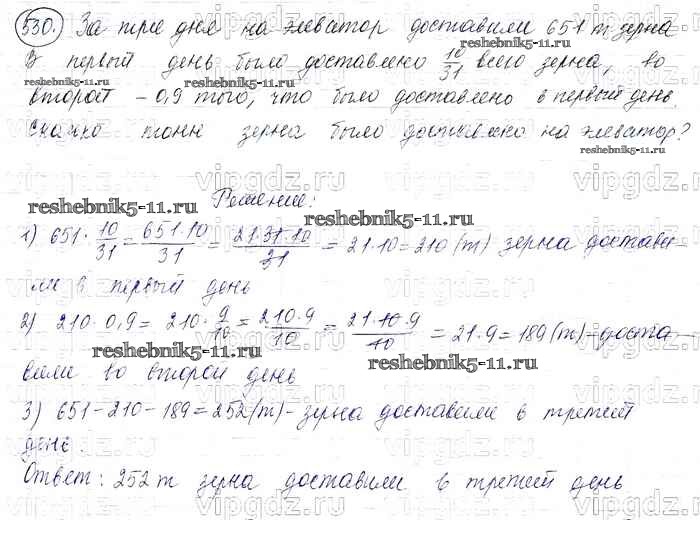 530. За три дня на элеватор доставили 651 т зерна
В первый день было доставлено 10/31 всего зерна, во
второй – 0,9 того, что было доставлено в первый день.
Сколько тонн зерна было доставлено на элеватор?
reshebnik5-11.ru
Решение:
reshebnik5-11.ru
1) 651 · 10/31 = 651·10/31 = 21·31·10/31 = 21·10 = 210 (т) зерна достави-
ли в первый день
2) 210 · 0,9 = 210 · 9/10 = 210·9/10 = 21·10·9/10 = 21·9 = 189 (т) – доста
reshebnik5-11.ru
вили во второй день
3) 651 – 210 – 189 = 252 (т) – зерна доставили в третий
день.
Ответ: 252 т зерна доставили в третий день
vipgdz.ru